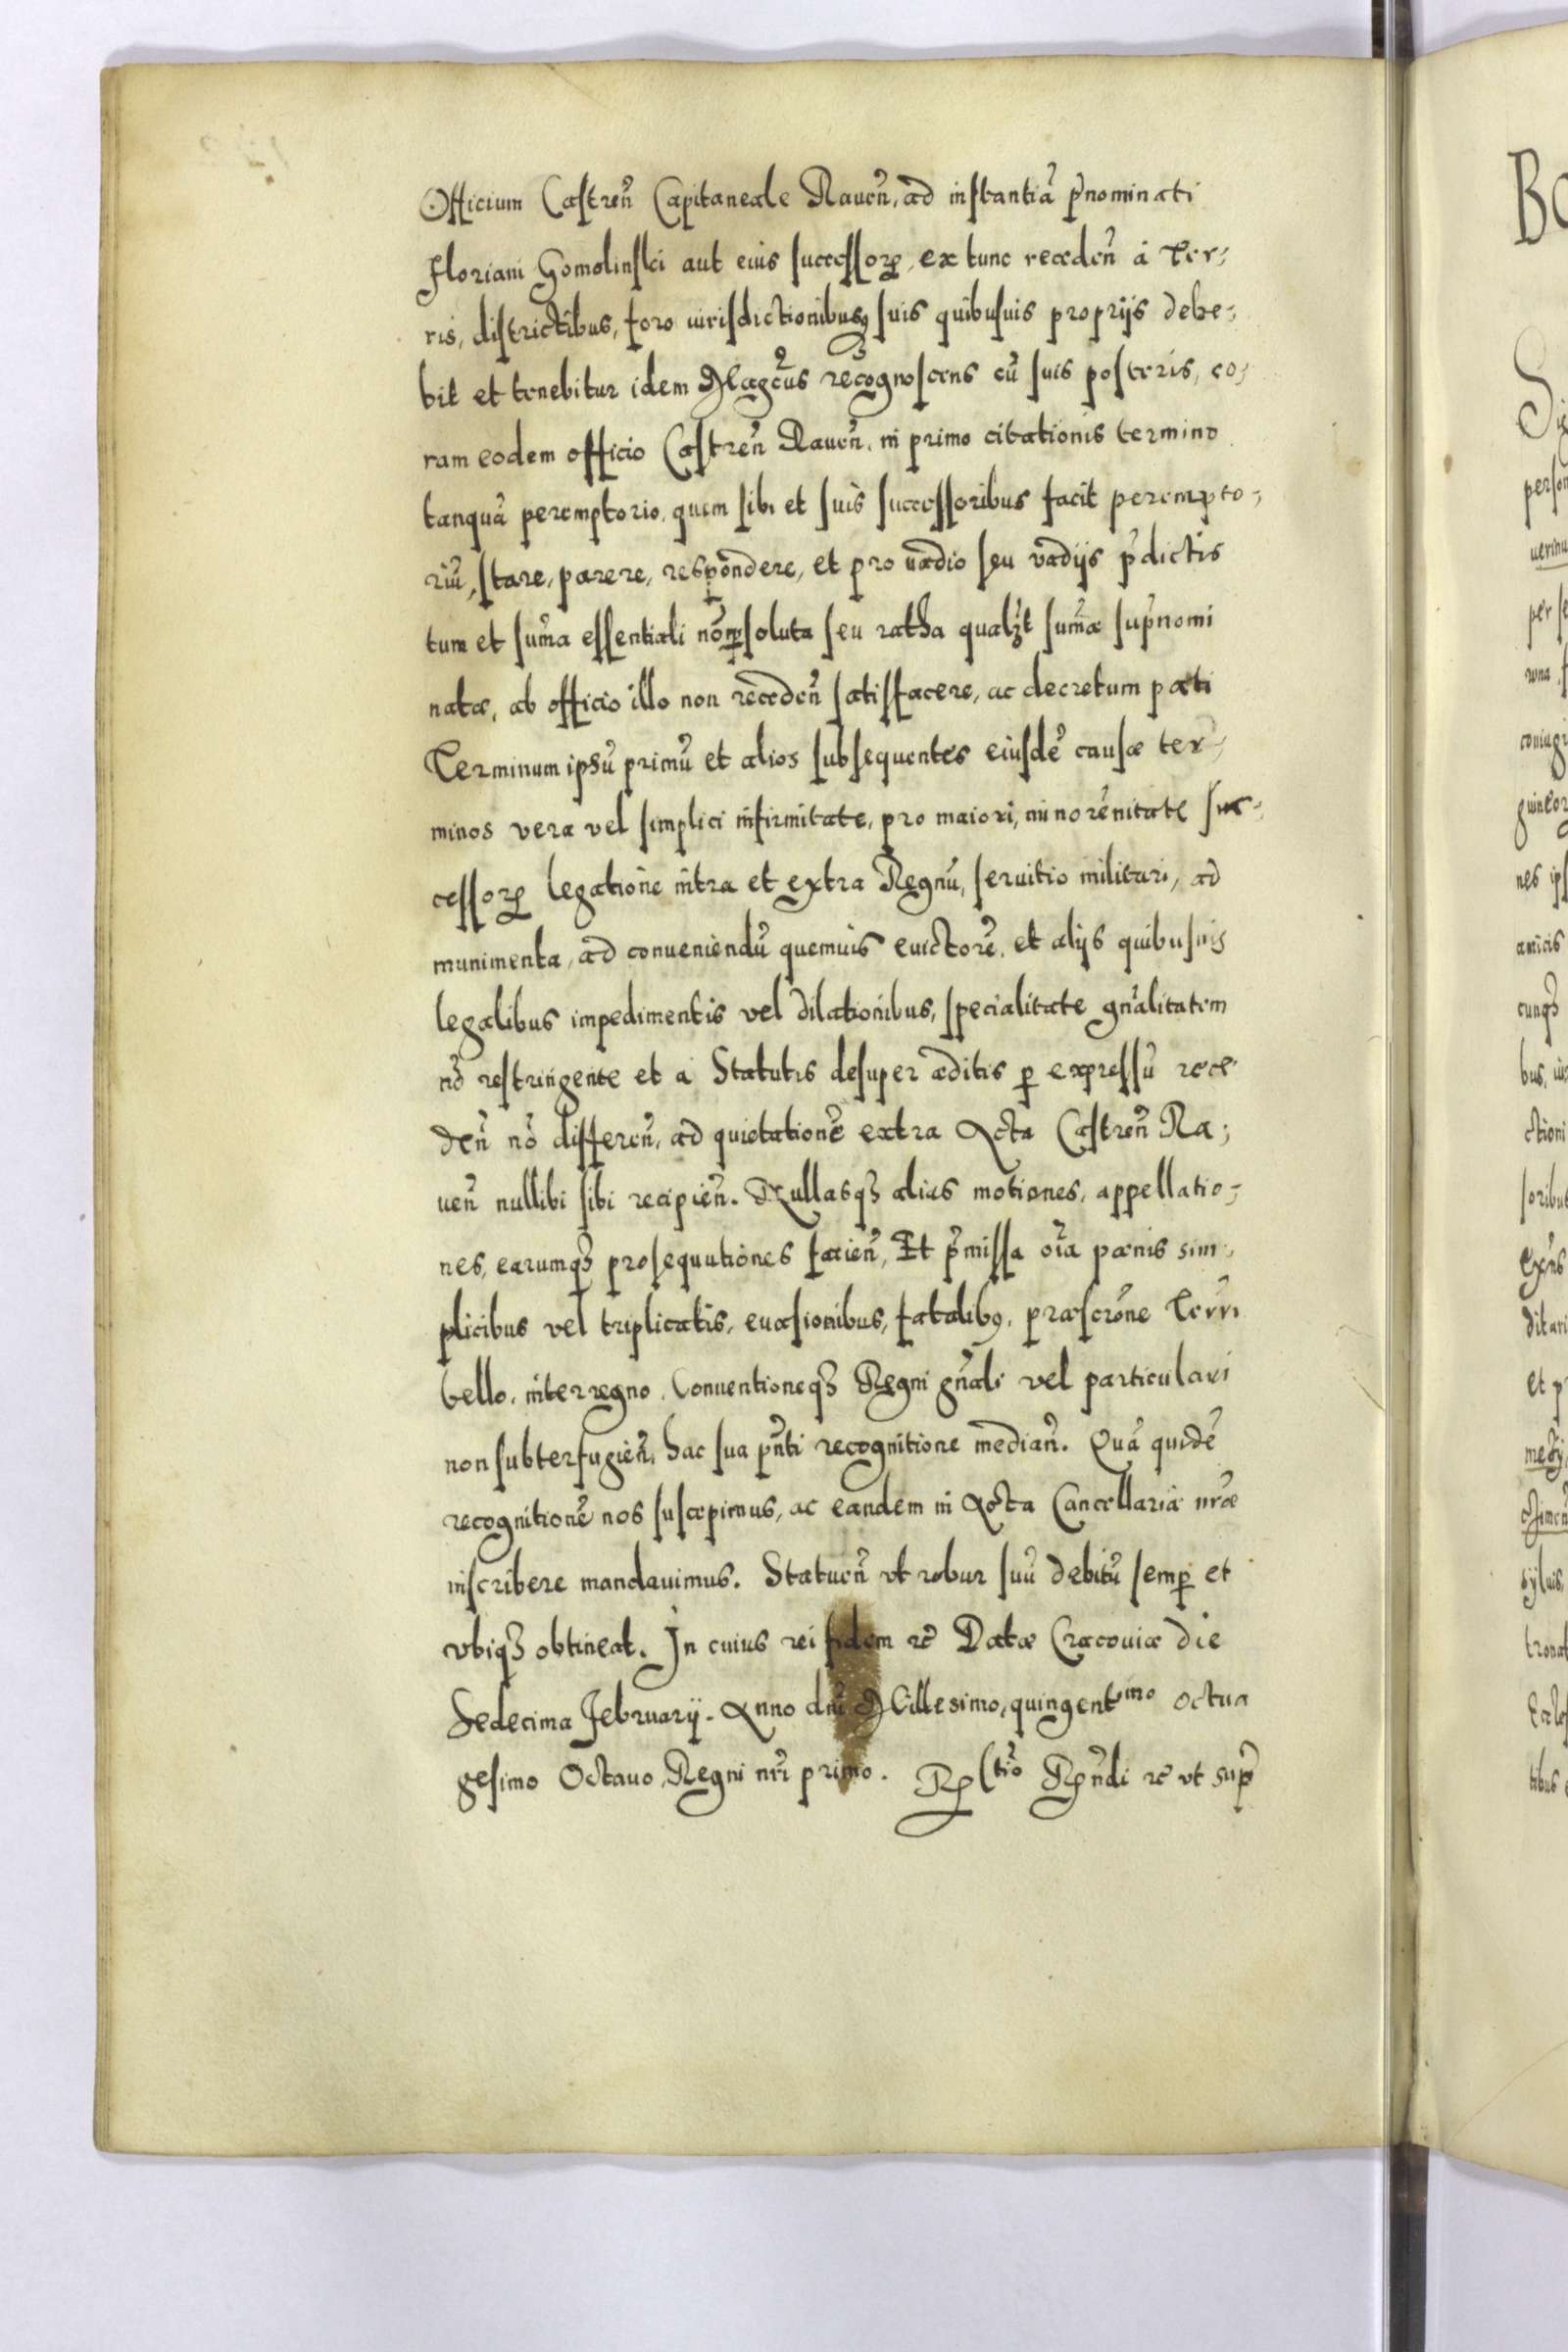 Officium Castreñ Capitaneale Raueñ, ad instantiã p̃nominati
Floriani Gomolinski aut eius successoꝝ, ex tunc recedeñ à Ter-
ris, districtibus, foro iurisdictionibusq̃ suis quibusuis proprijs debe-
bit et tenebitur idem Magcus recognoscens cũ suis posteris, co-
ram eodem officio Castreñ Raueñ, in primo citationis termino
tanquã peremptorio, quem sibi et suis successoribus facit perempto-
riũ, stare, parere, respondere, et pro uadio seu vadijs p̃dictis
tum et sum̃a essentiali nõ ꝑsoluta seu ratha qualꝫt sum̃æ sup̃nomi
natæ, ab officio illo non recedeñ satisfacere, ac decretum pati
Terminum ipsũ primũ et alios subsequentes eiusdẽ causæ ter-
minos vera vel simplici infirmitate, pro maiori, minorẽnitate suc-
cessoꝝ legatione intra et extra Regnũ, seruitio militari, ad
munimenta, ad conueniendũ quemuis euictorẽ, et alijs quibusuis
legalibus impedimentis vel dilationibus, specialitate gñalitatem
nõ restringente et à Statutis desuper æditis ꝑ expressũ rece
deñ nõ differeñ, ad quietationẽ extra Acta Castreñ Ra-
ueñ nullibi sibi recipieñ. Nullasqꝫ alias motiones, appellatio-
nes, earumqꝫ prosequutiones facieñ, Et p̃missa oĩa pænis sim-
plicibus vel triplicatis, euasionibus, fatalibꝰ, præscrõne Terri
bello, interregno, Conuentioneqꝫ Regni gñali vel particulari
non subterfugieñ, hac sua pñti recognitione mediañ. Quã quidẽ
recognitionẽ nos suscepimus, ac eandem in Acta Cancellariæ nr̃æ
inscribere mandauimus. Statueñ vt robur suũ debitũ semꝑ et
vbiqꝫ obtineat. In cuius rei fidem rẽ Datæ Cracouiæ die
Sedecima Februarij. Anno dnĩ Millesimo, quingentmo octua
gesimo Octauo, Regni nr̃i primo. Rꝑ(tĩo Rꝑñdi rẽ vt sup̃